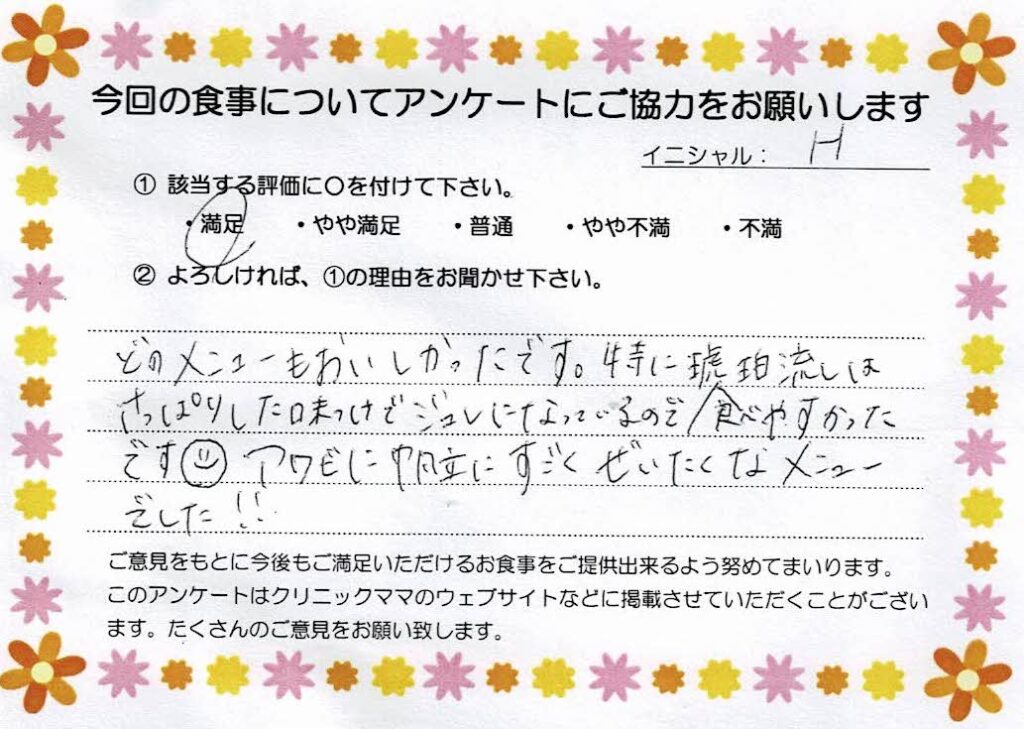 今回の食事についてアンケートにご協力をお願いします
イニシャル： H
① 該当する評価に〇を付けて下さい。
・満足 ・やや満足 ・普通 ・やや不満 ・不満
② よろしければ、①の理由をお聞かせ下さい。
どのメニューもおいしかったです。特に琥珀流しは
さっぱりした味つけでジュレになっているので食べやすかった
です☺ アワビに帆立にすごくぜいたくなメニュー
でした!!
ご意見をもとに今後もご満足いただけるお食事をご提供出来るよう努めてまいります。
このアンケートはクリニックママのウェブサイトなどに掲載させていただくことがござい
ます。たくさんのご意見をお願い致します。